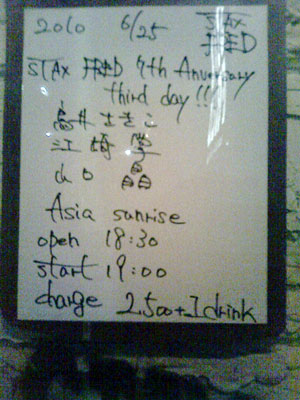 2010 6/25 STAX
FRED
STAX FRED 7th Anniversary
third day!!
高井
江崎
Asia sunrise
open 18:30
start 19:00
charge 2,500+1drink